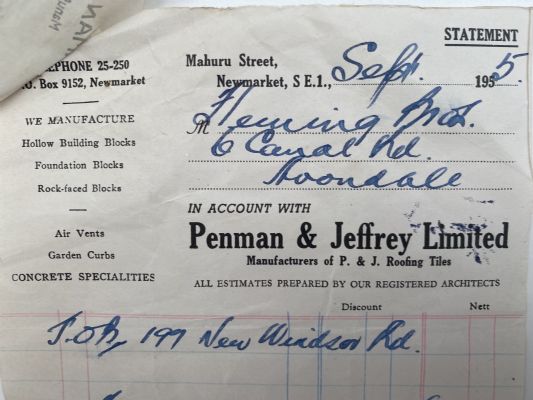 STATEMENT
TELEPHONE 25-250
P.O. Box 9152, Newmarket
Mahuru Street,
Newmarket, S E.1., Sept. 1955.
WE MANUFACTURE
Hollow Building Blocks
Foundation Blocks
Rock-faced Blocks
Air Vents
Garden Curbs
CONCRETE SPECIALITIES
M Fleming Bros.
6 Canal Rd.
Avondale
IN ACCOUNT WITH
Penman & Jeffrey Limited
Manufacturers of P. & J. Roofing Tiles
ALL ESTIMATES PREPARED BY OUR REGISTERED ARCHITECTS
Discount Nett
JOB, 199 New Windsor Rd.